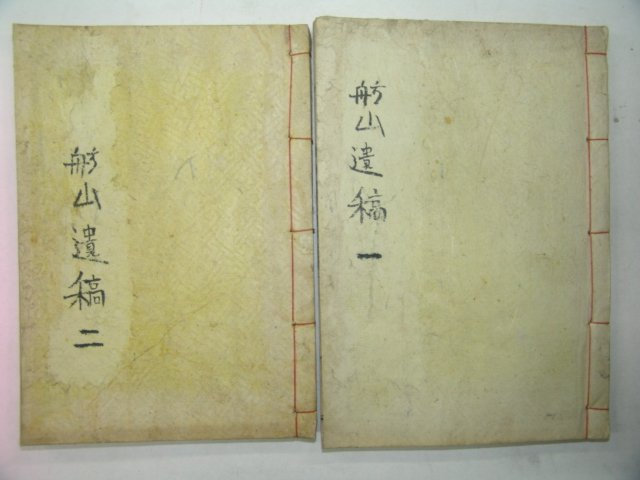 舫山遺稿 一
舫山遺稿 二